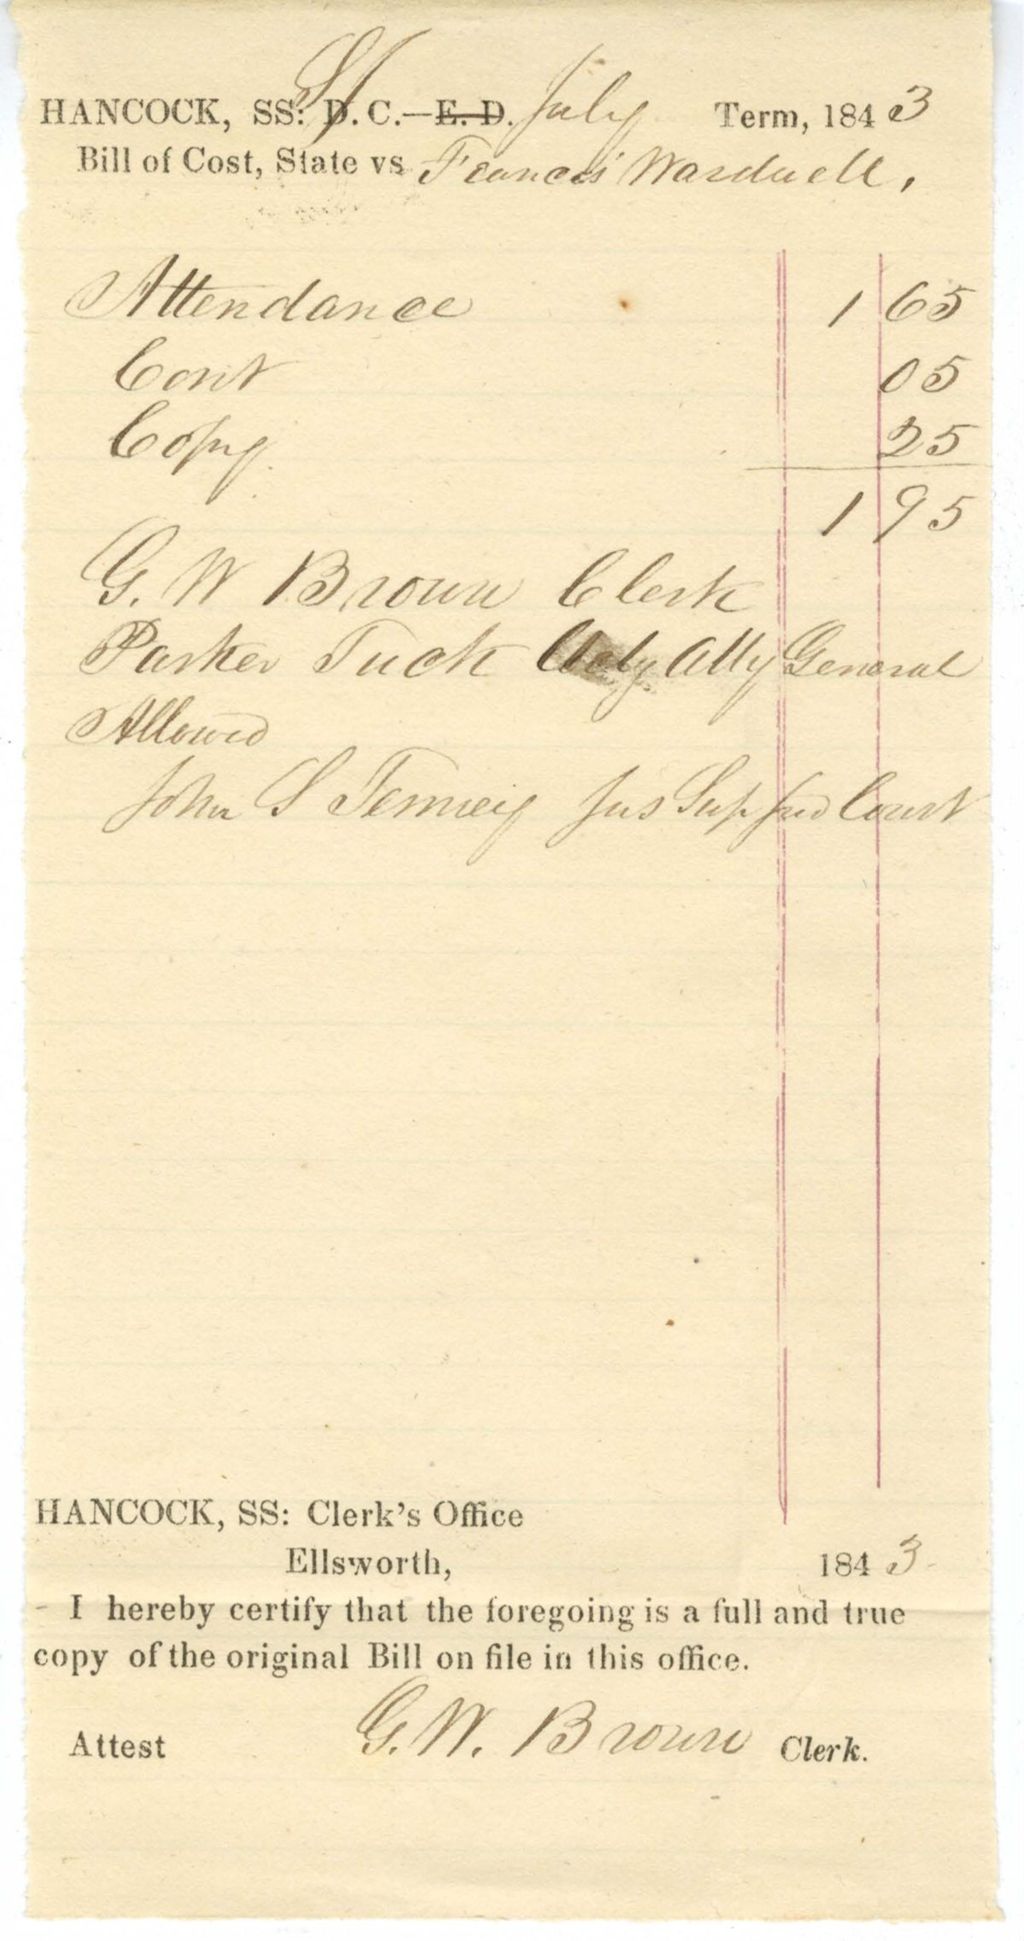 HANCOCK, SS: S J. C.—E. D. July Term, 1843
Bill of Cost, State vs Francis Wardwell,
Attendance 1 65
Cont 05
Copy 25
1 95
G. W Brown Clerk
Parker Tuck Atty General
Allowed
John S Tenney Jus Sup Jud Court
HANCOCK, SS: Clerk's Office
Ellsworth, 1843
I hereby certify that the foregoing is a full and true
copy of the original Bill on file in this office.
Attest G. W. Brown Clerk.